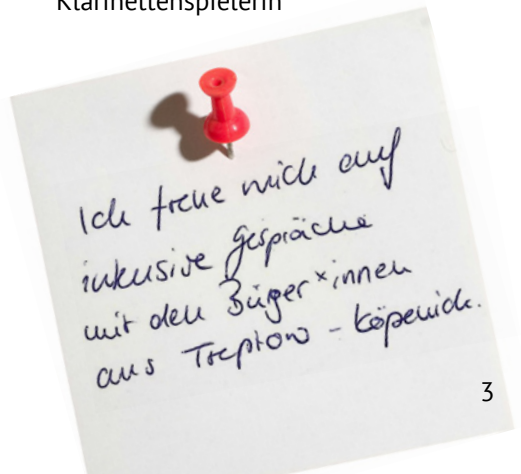 Klarinettenspielerin
Ich freue mich auf
intensive Gespräche
mit den Bürger*innen
aus Treptow - Köpenick.
3